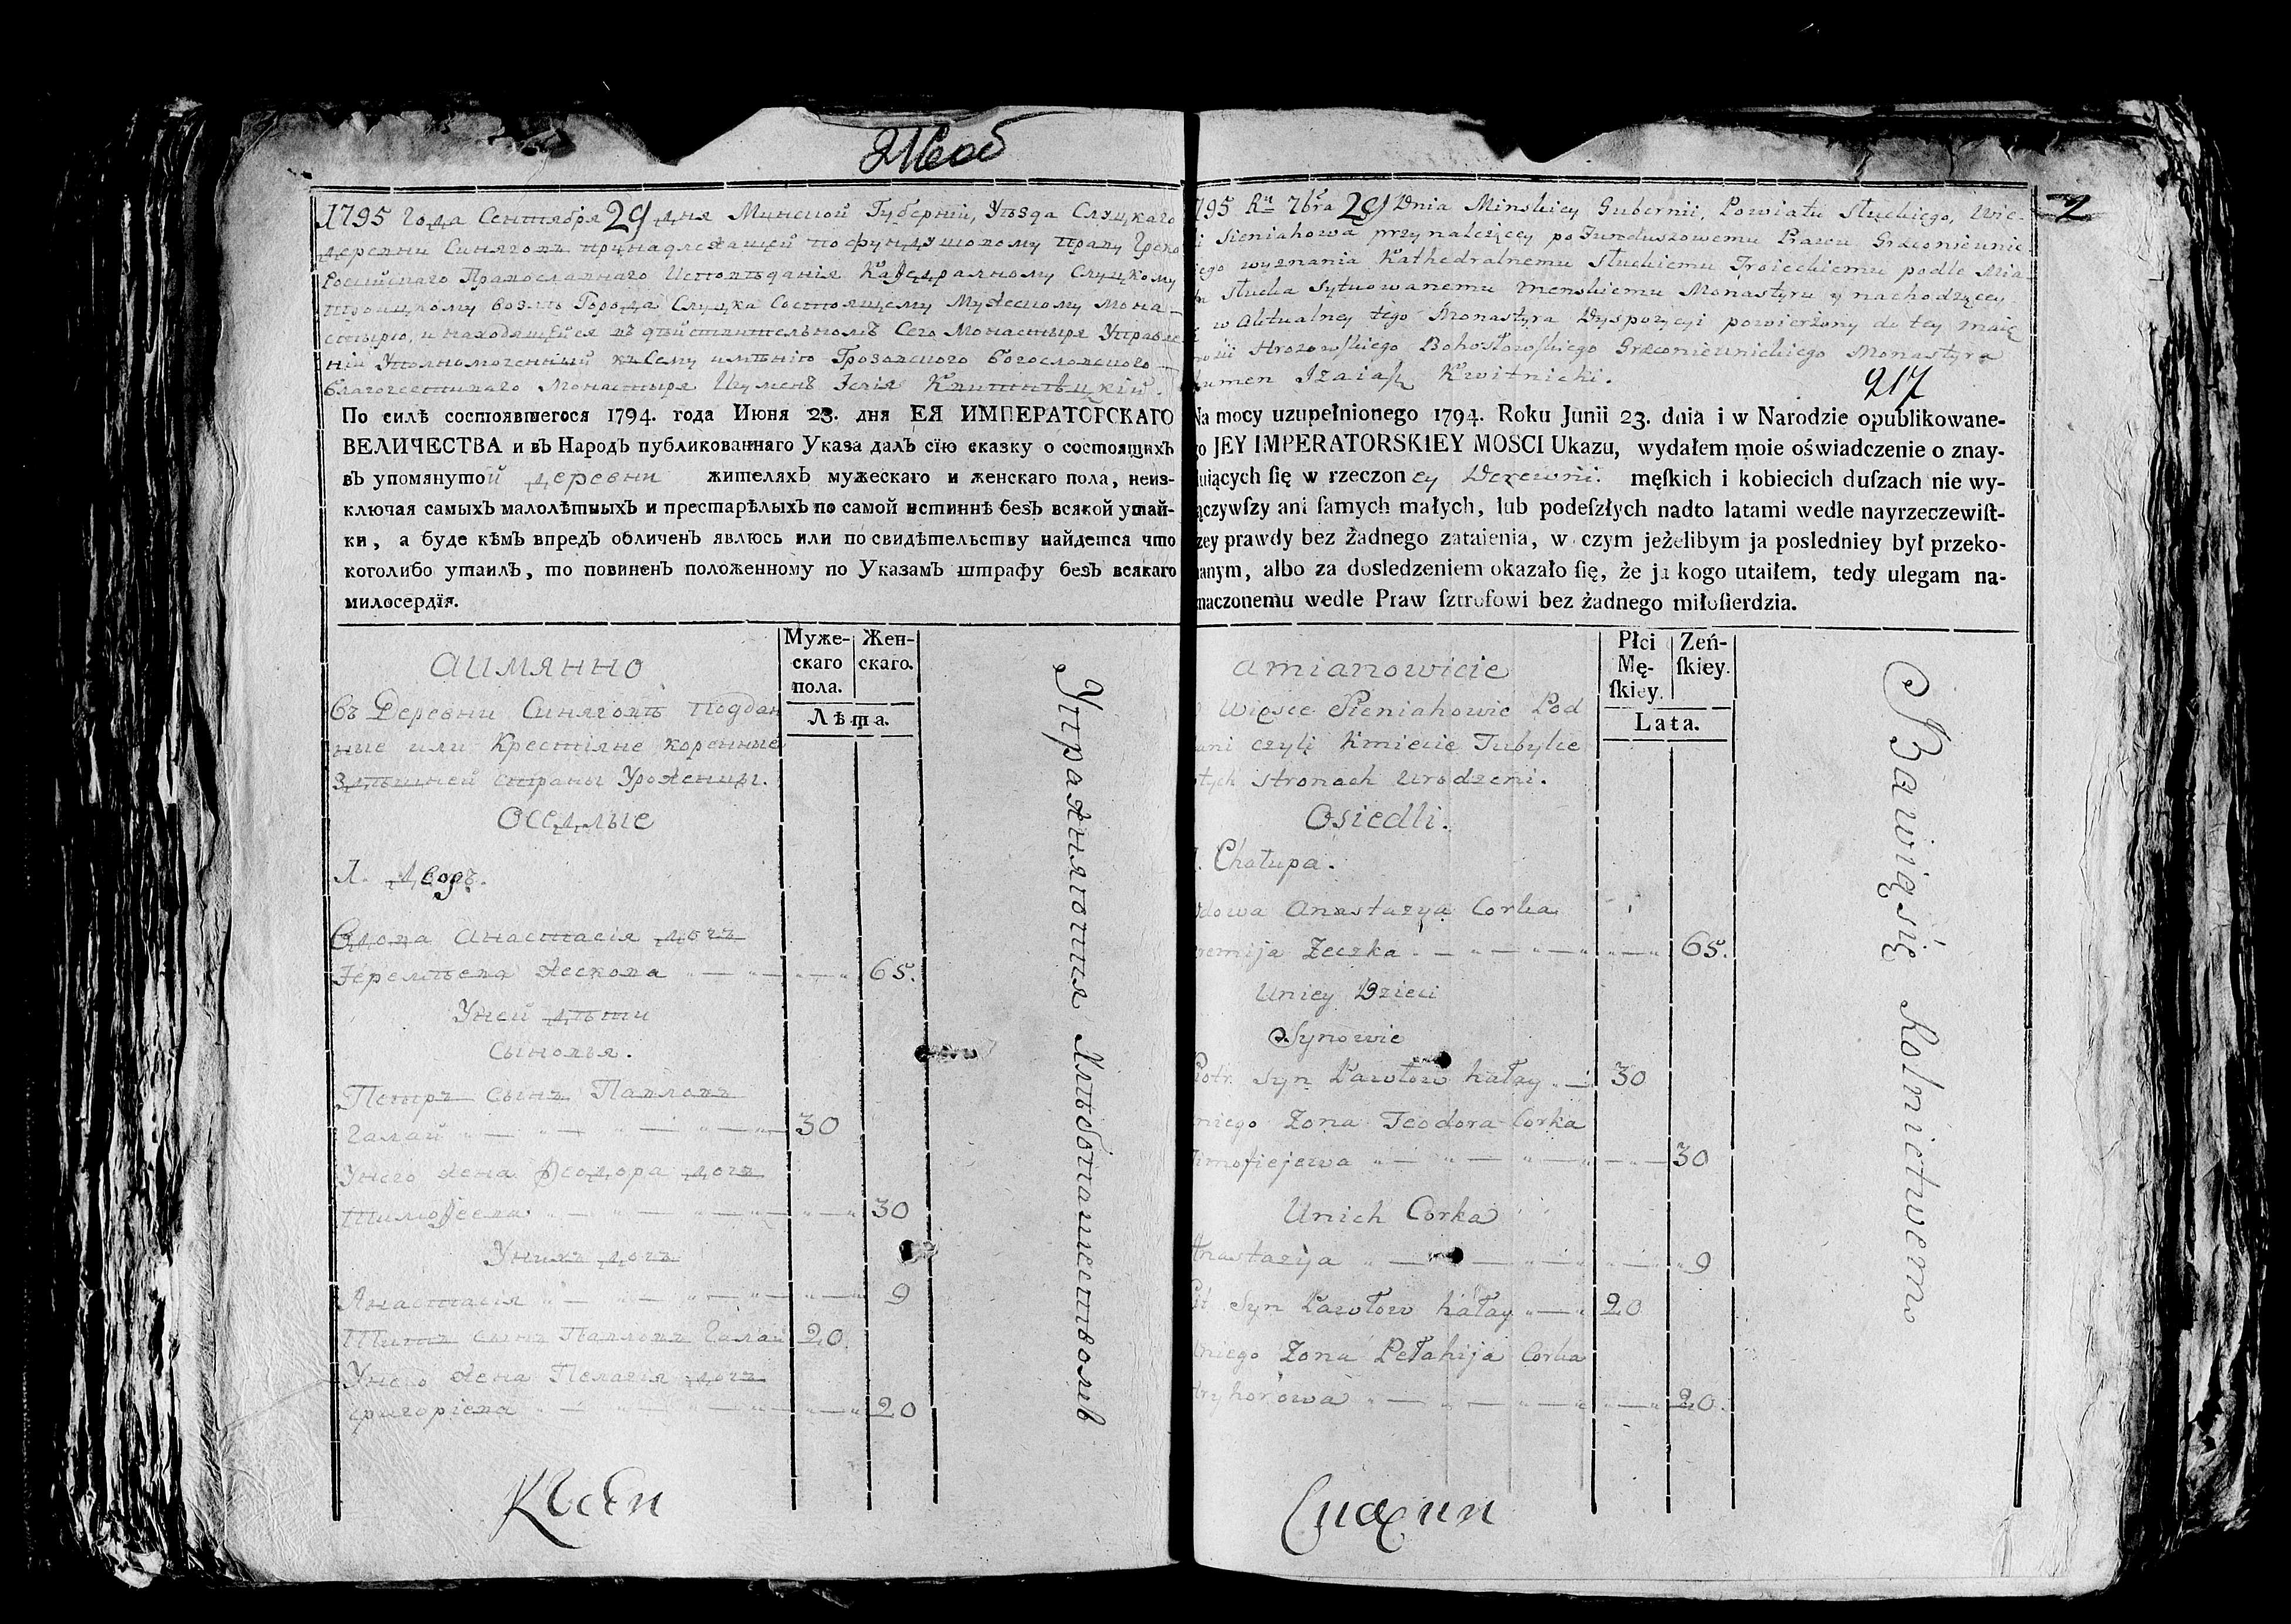 1795 Года Сентября 29 дня Минской Губернии, Уѣзда Слуцкаго
деревни Синяговъ принадлежащей по фундушовому праву Греко
Россійскаго Православнаго Исповѣданія Каѳедралному Слуцкому
Троицкому возлѣ Города Слуцка Состоящему Мужескому Мона-
стырю, и находящейся въ дѣйствительномъ Сего Монастыря Управле
ніи Уполномоченный къ Сему имѣнію Грозовского Богословского
благочестиваго Монастыря Игуменъ Исаія Квитнѣцкій.
По силѣ состоявшегося 1794. года Июня 23. дня ЕЯ ИМПЕРАТОРСКАГО
ВЕЛИЧЕСТВА и въ Народъ публикованнаго Указа далъ сїю сказку о состоящихъ
въ упомянутой деревни жителяхъ мужескаго и женскаго пола, неиз-
ключая самыхъ малолѣтныхъ и престарѣлыхъ по самой истиннѣ безъ всякой утай-
ки, а буде кѣмъ впредъ обличенъ явлюсь или по свидѣтельству найдется что
коголибо утаилъ, то повиненъ положенному по Указамъ штрафу безъ всякаго
милосердїя.
аимянно
Муже-
скаго
пола.
Жен-
скаго.
Лѣта.
Въ Деревни Синяговъ Поддан
ные или Крестіяне коренные
Здѣшней страны Уроженцы.
Оседлые
1. Дворъ.
Вдова Анастасія дочь
Іеремѣева Жескова 65.
Уней дѣти
Сыновья.
Петръ сынъ Павловъ
Галай 30
Унего жена Ѳеодора дочь
Тимоѳеева 30
Унихъ дочь
Анастасія 9
Титъ сынъ Павловъ Галай 20.
Унего жена Пелагія дочь
Григоріева 20
Упражняются Хлѣбопашествомъ
195 Ru 7bra 29 Dnia Minskiey Gubernii, Powiatu Słuckiego, Wie-
i Sieniahowa przynależącey po Funduszowemu Prawu Grzeconieunic
iego wyznania Kathedralnemu Słuckiemu Troieckiemu podle Mia
Słucka Sytuowanemu Menskiemu Monastyru y nachodzącey
w Aktualney tego Monastyra Dyspozycyi powierzony do tey maię
Hrozowskiego Bohosłowskiego Grzeconieunickiego Monastyra
umen Izaiasz Kwitnicki.
217
2
Na mocy uzupełnionego 1794. Roku Junii 23. dnia i w Narodzie opublikowane-
o JEY IMPERATORSKIEY MOSCI Ukazu, wydałem moie oświadczenie o znay-
uiących ſię w rzeczoney Derewni. męſkich i kobiecich duſzach nie wy-
ączywſzy ani ſamych małych, lub podeſzłych nadto latami wedle nayrzeczewiſt-
zey prawdy bez żadnego zataienia, w czym jeżelibym ja posledniey był przeko-
anym, albo za dosledzeniem okazało ſię, że ja kogo utaiłem, tedy ulegam na-
naczonemu wedle Praw ſztrofowi bez żadnego miłoſierdzia.
amianowicie
Płci
Mę-
ſkiey.
Zeń-
ſkiey.
Lata.
Więsce Sieniahowie Pod
ani czyli Kmiecie Tubylce
tych stronach urodzeni.
Osiedli.
. Chałupa.
dowa Anastazya Corka
remija Zeczka 65.
Uniey Dzieci
Synowie
Piotr Syn Pawłow Hałay 30
niego Zona Teodora Corka
Timofiejewa 30
Unich Corka
Anastazya 9
Tit Syn Pawłow Hałay 20
Uniego Zona Pełahija Corka
Hryhorowa 20.
Bawią się Rolnictwem